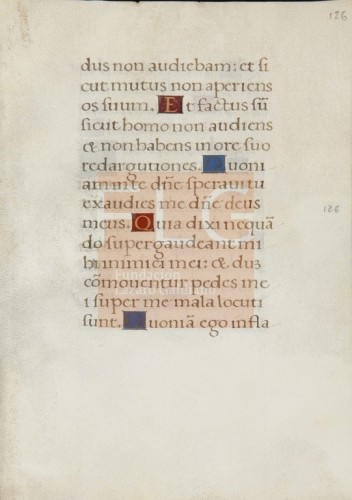 126
dus non audiebam: et si
cut mutus non aperiens
os suum. Et factus sū
sicut homo non audiens
& non habens in ore suo
redargutiones. Quoni
am in te dñe speravi tu
exaudies me dñe deus
meus. Quia dixi nequā
do supergaudeant mi
hi inimici mei: & dū
cōmoventur pedes me
i super me mala locuti
sunt. Quoniā ego infla
126
Fundación
Lázaro Galdiano